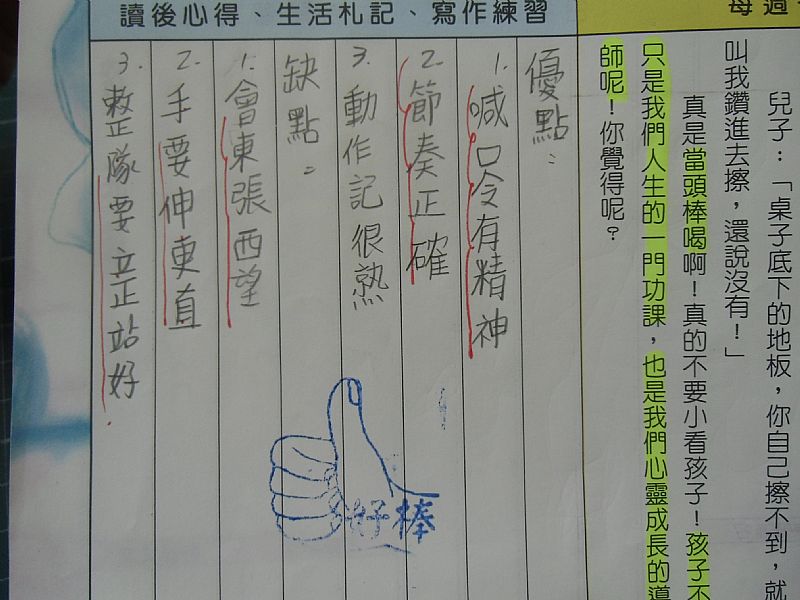 讀後心得、生活札記、寫作練習
每週
兒子：「桌子底下的地板，你自己擦不到，就
叫我鑽進去擦，還說沒有！」
真是當頭棒喝啊！真的不要小看孩子！孩子不
只是我們人生的一門功課，也是我們心靈成長的導
師呢！你覺得呢？
優點：
1. 喊口令有精神
2. 節奏正確
3. 動作記很熟
缺點：
1. 會東張西望
2. 手要伸更直
3. 整隊要立正站好
好棒